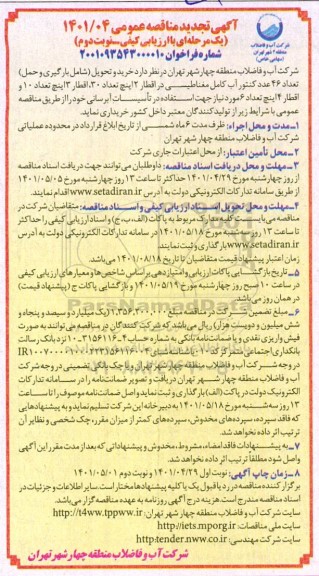 آگهی تجدید مناقصه عمومی ۱۴۰۱/۰۴
(یک مرحله‌ای با ارزیابی کیفی-نوبت دوم)
شماره فراخوان ۲۰۰۱۰۹۳۵۴۳۰۰۰۰۱۰
شرکت آب و فاضلاب
منطقه ۴ شهر تهران
(سهامی خاص)
شرکت آب و فاضلاب منطقه چهار شهر تهران در نظر دارد خرید و تحویل (شامل بارگیری و حمل)
تعداد ۴۶ عدد کنتور آب کامل مغناطیسی در اقطار ۲ اینچ تعداد ۳۰، اقطار ۳ اینچ تعداد ۱۰ و
اقطار ۴ اینچ تعداد ۶ مورد نیاز جهت استفاده در تأسیسات آبرسانی خود را از طریق مناقصه
عمومی با شرایط زیر از تولیدکنندگان معتبر داخل کشور خریداری نماید.
۱-مدت و محل اجراء: ظرف مدت ۶ ماه شمسی از تاریخ ابلاغ قرارداد در محدوده عملیاتی
شرکت آب و فاضلاب منطقه چهار شهر تهران
۲-محل تأمین اعتبار: از محل اعتبارات جاری شرکت
۳-مهلت و محل دریافت اسناد مناقصه: داوطلبان می‌توانند جهت دریافت اسناد مناقصه
از روز چهارشنبه مورخ ۱۴۰۱/۰۴/۲۹ حداکثر تا ساعت ۱۳ روز چهارشنبه مورخ ۱۴۰۱/۰۵/۰۵
از طریق سامانه تدارکات الکترونیکی دولت به آدرس www.setadiran.ir اقدام نمایند.
۴-مهلت و محل تحویل اسناد ارزیابی کیفی و اسناد مناقصه: متقاضیان شرکت در
مناقصه می‌بایست کلیه مدارک مربوط به پاکات (الف، ب، ج) و اسناد ارزیابی کیفی را حداکثر
تا ساعت ۱۳ روز سه‌شنبه مورخ ۱۴۰۱/۰۵/۱۸ در سامانه تدارکات الکترونیکی دولت به آدرس
www.setadiran.ir بارگذاری و ثبت نمایند.
زمان اعتبار پیشنهاد قیمت متقاضیان تا تاریخ ۱۴۰۱/۰۸/۱۸ می‌باشد.
۵-تاریخ بازگشایی پاکات ارزیابی و امتیازدهی براساس شاخص‌ها و معیارهای ارزیابی کیفی
در ساعت ۱۰ صبح روز چهارشنبه مورخ ۱۴۰۱/۰۵/۱۹ و بازگشایی پاکات ج (پیشنهاد قیمت)
در همان روز می‌باشد.
۶-مبلغ تضمین شرکت در مناقصه مبلغ
شش میلیون و دویست هزار) ریال می‌باشد که شرکت‌کنندگان در مناقصه می‌توانند به صورت
فیش واریزی نقدی و یا ضمانت‌نامه بانکی به شماره حساب
در وجه شرکت آب و فاضلاب منطقه چهار شهر تهران و یا چک بانکی تضمینی در وجه شرکت
آب و فاضلاب منطقه چهار شهر تهران دریافت و تصویر ضمانت‌نامه را در سامانه تدارکات
الکترونیک دولت در پاکت (الف) بارگذاری و ثبت نماید و اصل ضمانت‌نامه موصوف را تا ساعت
۱۳ روز سه‌شنبه مورخ ۱۴۰۱/۰۵/۱۸ به دبیرخانه این شرکت تسلیم نماید و به پیشنهادهایی
که فاقد سپرده، سپرده‌های مخدوش، سپرده‌های کمتر از میزان مقرر، چک شخصی و نظایر آن
ترتیب اثر داده نخواهد شد.
۷-به پیشنهادات فاقد امضاء، مشروط، مخدوش و پیشنهاداتی که بعد از مدت مقرر این آگهی
واصل شود مطلقاً ترتیب اثر داده نخواهد شد.
۸-زمان چاپ آگهی: نوبت اول ۱۴۰۱/۰۴/۲۹ و نوبت دوم ۱۴۰۱/۰۵/۰۱
برگزار کننده مناقصه در رد یا قبول یک یا کلیه پیشنهادها مختار است. سایر اطلاعات و جزئیات در
اسناد مناقصه مندرج است. هزینه درج آگهی روزنامه به عهده مناقصه‌گزار می‌باشد.
سایت شرکت آب و فاضلاب منطقه چهار شهر تهران: http://t4ww.tppww.ir
سایت ملی مناقصات: http://iets.mporg.ir
سایت شرکت مهندسی: http:tender.nww.co.ir
شرکت آب و فاضلاب منطقه چهار شهر تهران